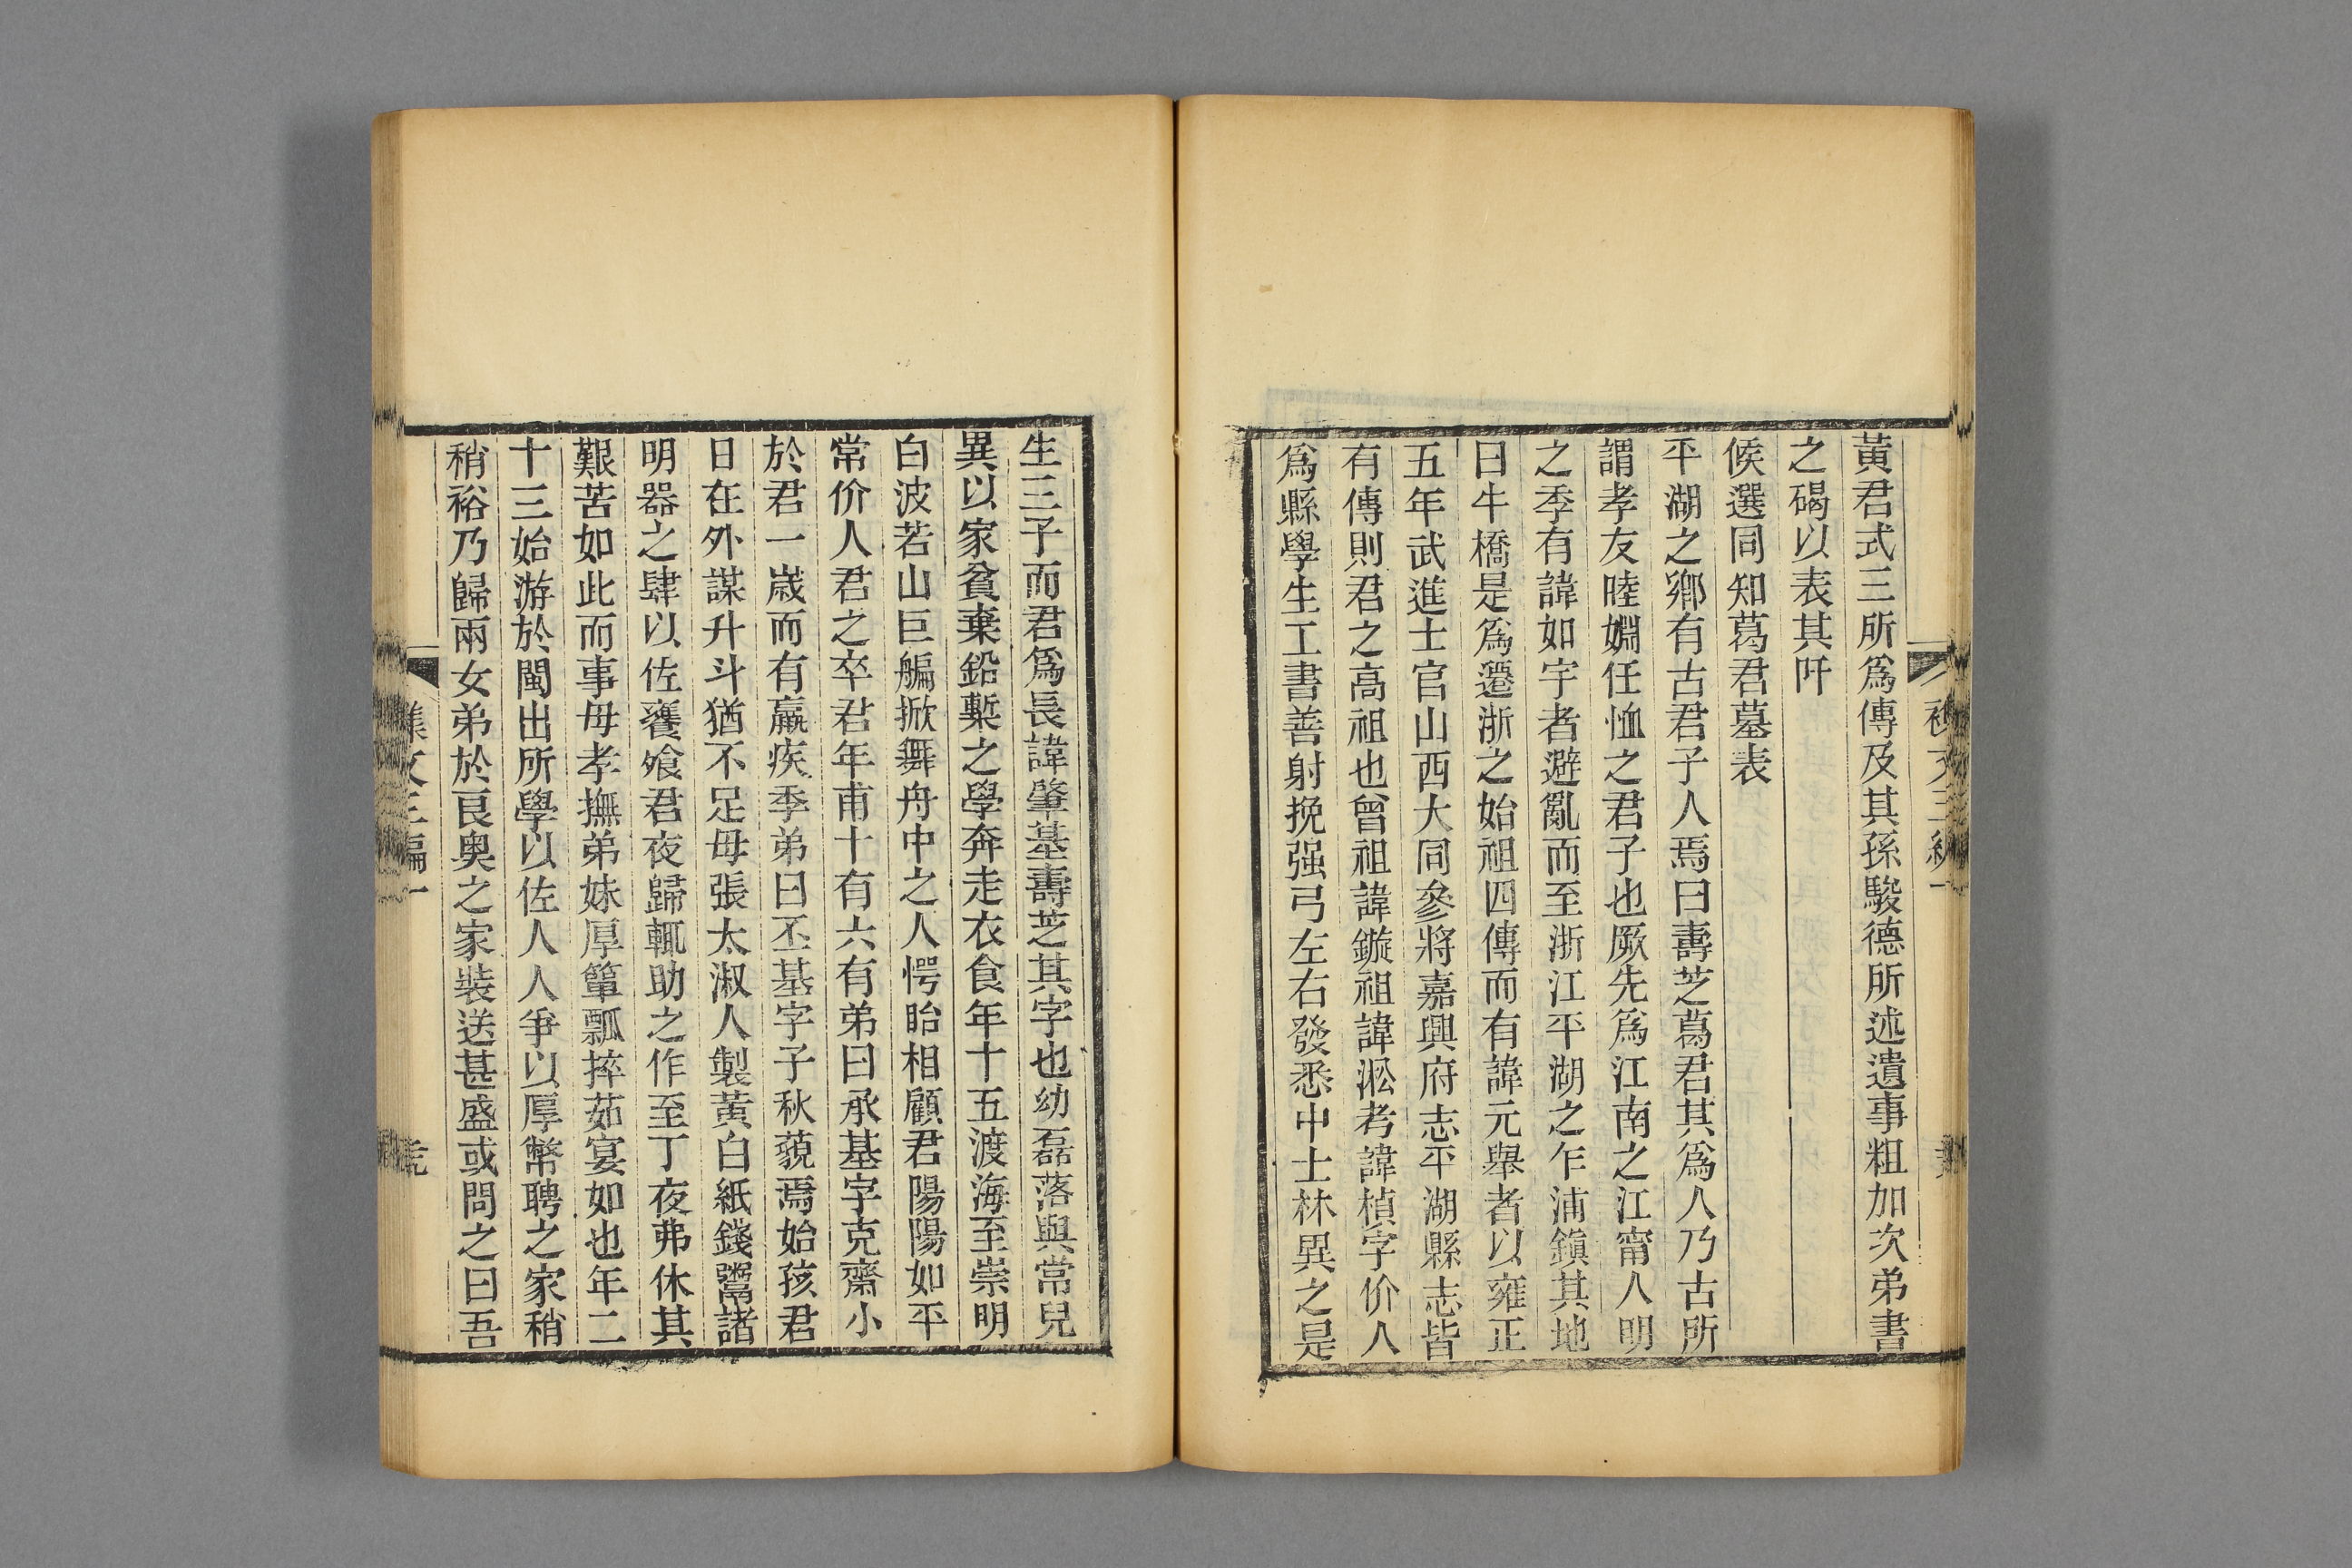 黃君式三所爲傳及其孫駿德所述遺事粗加次弟書
之碣以表其阡
候選同知葛君墓表
平湖之鄉有古君子人焉曰壽芝葛君其爲人乃古所
謂孝友睦婣任恤之君子也厥先爲江南之江甯人明
之季有諱如宇者避亂而至浙江平湖之乍浦鎭其地
曰牛橋是爲遷浙之始祖四傳而有諱元舉者以雍正
五年武進士官山西大同參將嘉興府志平湖縣志皆
有傳則君之高祖也曾祖諱鏇祖諱淞考諱楨字价人
爲縣學生工書善射挽强弓左右發悉中士林異之是
生三子而君爲長諱肇基壽芝其字也幼磊落與常兒
異以家貧棄鉛槧之學奔走衣食年十五渡海至崇明
白波若山巨艑掀舞舟中之人愕眙相顧君陽陽如平
常价人君之卒君年甫十有六有弟曰承基字克齋小
於君一歲而有羸疾季弟曰丕基字子秋藐焉始孩君
日在外謀升斗猶不足母張太淑人製黃白紙錢鬻諸
明器之肆以佐饔飧君夜歸輒助之作至丁夜弗休其
艱苦如此而事母孝撫弟妹厚簞瓢捽茹宴如也年二
十三始游於閩出所學以佐人人爭以厚幣聘之家稍
稍裕乃歸兩女弟於艮奥之家裝送甚盛或問之曰吾